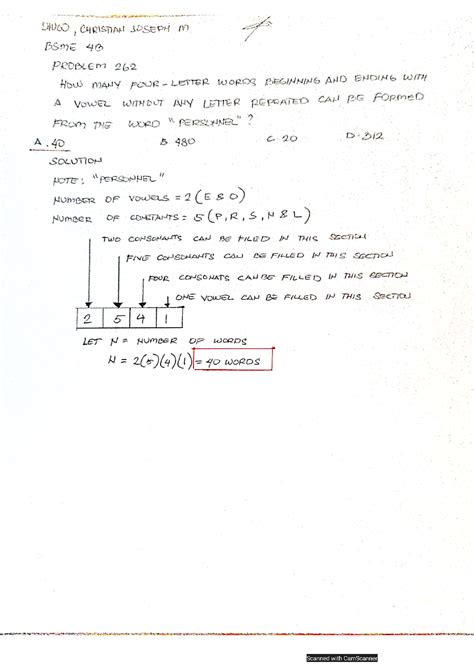 CHRISTIAN JOSEPH M
BSME 4B
PROBLEM 262
HOW MANY FOUR-LETTER WORDS BEGINNING AND ENDING WITH
A VOWEL WITHOUT ANY LETTER REPEATED CAN BE FORMED
FROM THE WORD "PERSONNEL"?
A. 40 B. 480 C. 20 D. 312
SOLUTION
NOTE: "PERSONNEL"
NUMBER OF VOWELS = 2 (E & O)
NUMBER OF CONSTANTS = 5 (P, R, S, N & L)
TWO CONSONANTS CAN BE FILLED IN THIS SECTION
FIVE CONSONANTS CAN BE FILLED IN THIS SECTION
FOUR CONSONATS CAN BE FILLED IN THIS SECTION
ONE VOWEL CAN BE FILLED IN THIS SECTION
2 5 4 1
LET N = NUMBER OF WORDS
N = 2(5)(4)(1) = 40 WORDS
Scanned with CamScanner